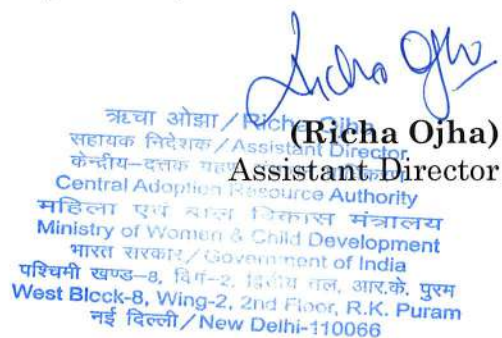 Richa Ojha
(Richa Ojha)
Assistant Director
ऋचा ओझा / Richa Ojha
सहायक निदेशक / Assistant Director
केन्द्रीय-दत्तक ग्रहण
Central Adoption Resource Authority
महिला एवं बाल विकास मंत्रालय
Ministry of Women & Child Development
भारत सरकार / Government of India
पश्चिमी खण्ड-8, विंग-2, द्वितीय तल, आर.के. पुरम
West Block-8, Wing-2, 2nd Floor, R.K. Puram
नई दिल्ली / New Delhi-110066